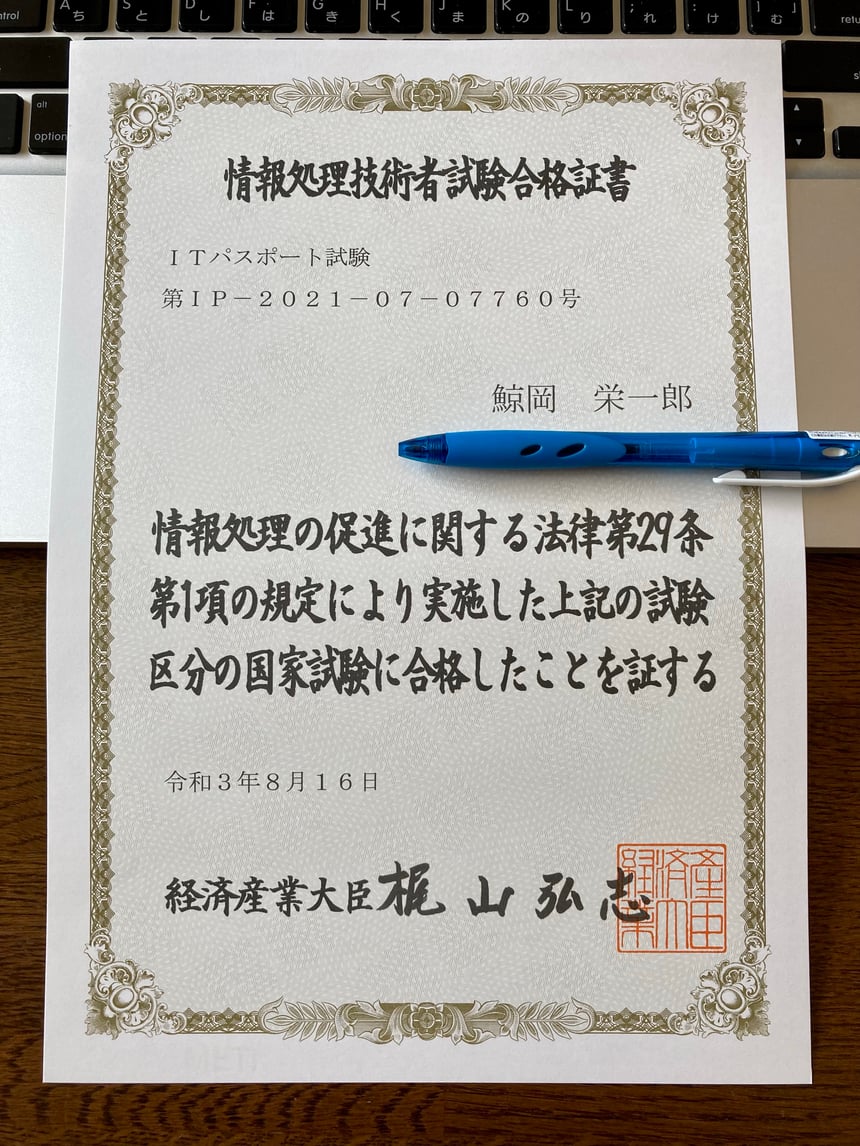 control
A ち
S と
D し
F は
G き
H く
J ま
K の
L り
; れ
: け
] む
retu
alt
option
s
情報処理技術者試験合格証書
ＩＴパスポート試験
第ＩＰ－２０２１－０７－０７７６０号
鯨岡　栄一郎
情報処理の促進に関する法律第29条
第1項の規定により実施した上記の試験
区分の国家試験に合格したことを証する
令和３年８月１６日
経済産業大臣 梶山弘志